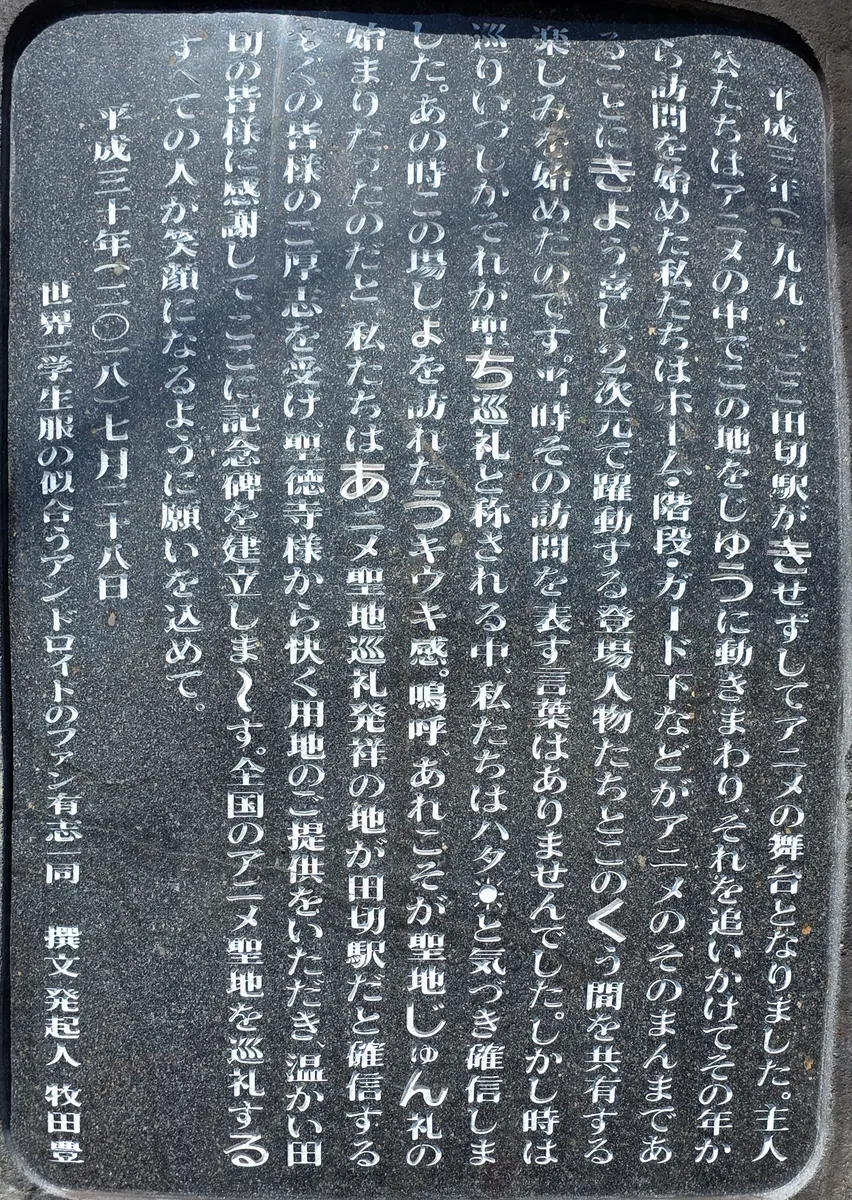 平成三年(一九九一)、ここ田切駅がきせずしてアニメの舞台となりました。主人
公たちはアニメの中でこの地をじゆうに動きまわり、それを追いかけてその年か
ら訪問を始めた私たちはホーム・階段・ガード下などがアニメのそのまんまであ
ることにきょう喜し、2次元で躍動する登場人物たちとこのくう間を共有する
楽しみを始めたのです。当時その訪問を表す言葉はありませんでした。しかし時は
巡りいつしかそれが聖ち巡礼と称される中、私たちはハタ☀と気づき確信しま
した。あの時この場しょを訪れたうキウキ感。嗚呼、あれこそが聖地じゅん礼の
始まりだったのだと。私たちはあニメ聖地巡礼発祥の地が田切駅だと確信する
多くの皆様のご厚志を受け、聖徳寺様から快く用地のご提供をいただき、温かい田
切の皆様に感謝して、ここに記念碑を建立しま〜す。全国のアニメ聖地を巡礼する
すべての人が笑顔になるように願いを込めて。
平成三十年(二〇一八)七月二十八日
世界一学生服の似合うアンドロイドのファン有志一同 撰文 発起人 牧田豊